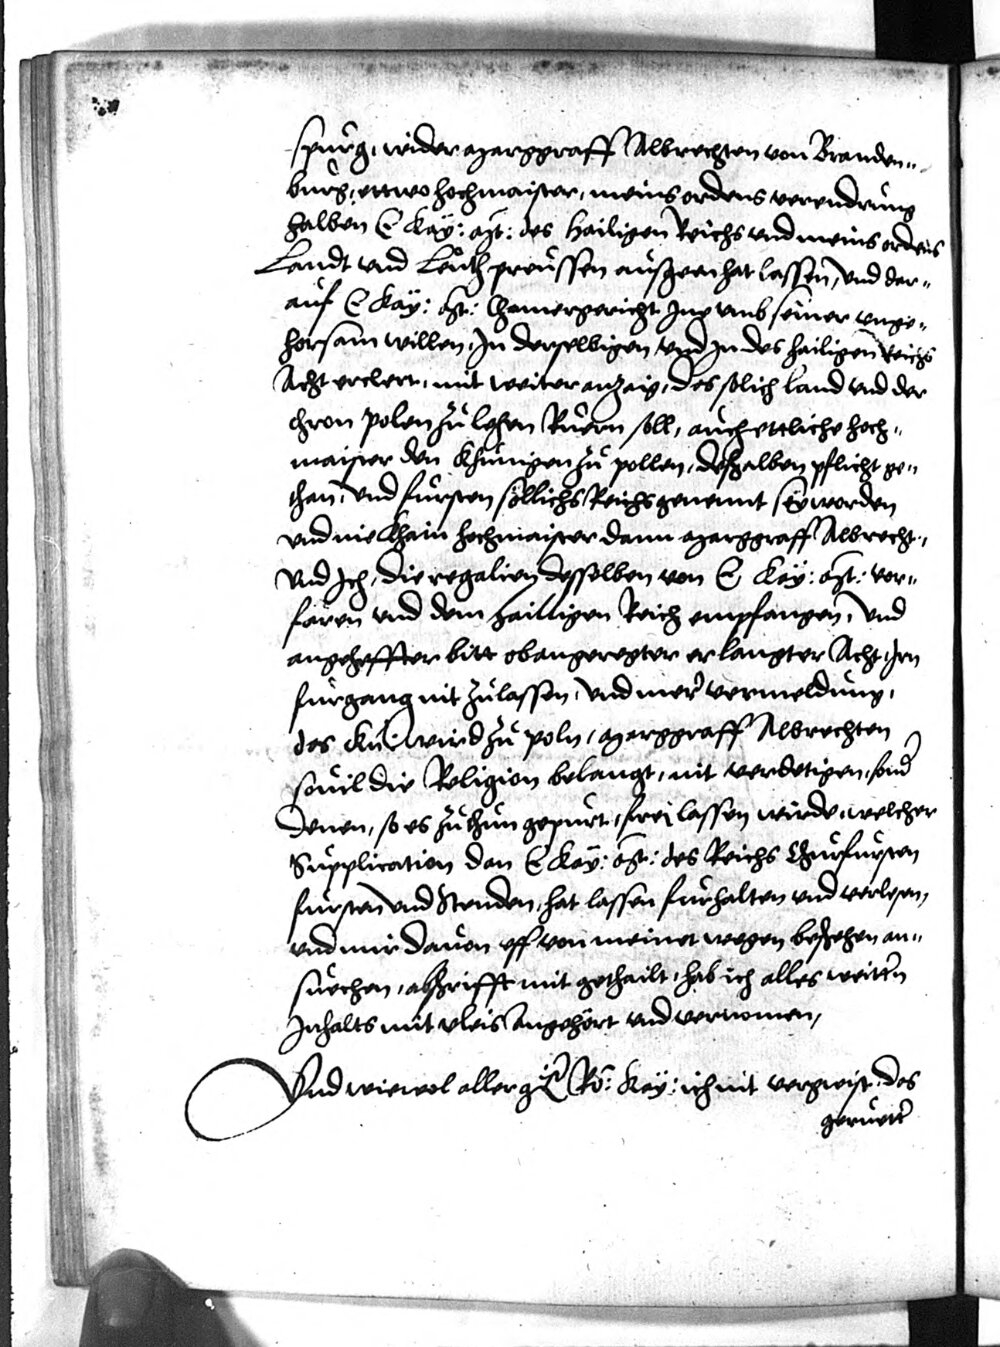 spurg, wider Marggraff Albrechten von Branden„
burg, ettwo hochmaister, meins ordens verendrung
halben E Kay: Mt: des hailigen Reichs vnd meins ordens
Landt vnd Leuth preussen außgeen hat lassen, vnd dar„
auf E Kay: Mt: Chamergericht Jne vmb seiner vnge„
horsam willen, Jn derselbigen vnd Jn des hailigen Reichs
Acht erclert, mit weiter anzaig, das solich Land vnd der
chron polen zu lehen Ruern soll, auch ettliche hoch„
maister den Khunigen zu pollen, deßhalben pflicht ge„
than, vnd fursten sollichs Reichs genennt sey worden
vnd nie khain hochmaister dann Marggraff Albrecht„
vnd Jch, die regalien desselben von E Kay: Mt: vor„
faren vnd dem hailligen Reich empfangen, vnd
angeheffter bitt obangeregter erlangter Acht, Jrn
furgang nit zulassen, vnd merer vermeldung,
das Kü: wird zu poln, Marggraff Albrechten
souil die Religion belangt, nit verdetigen, sonder
denen, so es zuthun gepurt, frei lassen würde, welcher
Supplication dan E Kay: Mt: des Reichs Churfursten
fursten vnd Stenden, hat lassen furhalten vnd verlesen,
vnd mir dauon vff von meinet wegen beschehen an„
suechen, abschrifft mit gethailt, hab ich alles weitern
Jnhalts mit vleis angehört vnd vernomen,
Vnd wiewol aller g E Rö: Kay: ich nit vergwist, das
geruerter